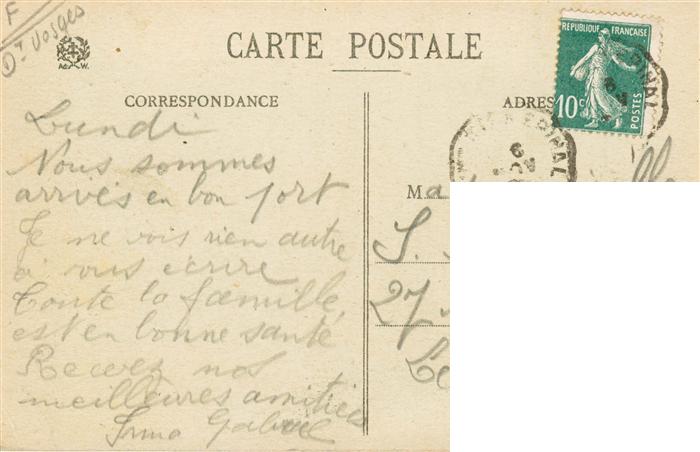 F
Dt Vosges
A. W.
CARTE POSTALE
RÉPUBLIQUE FRANÇAISE
10c POSTES
CORRESPONDANCE
ADRES
Lundi
Nous sommes
arrivés en bon port
Je ne vois rien autre
à vous écrire
Toute la famille
est en bonne santé
Recevez nos
meilleures amitiés
Irma Gabriel
EPINAL
PINAL
Ma
27